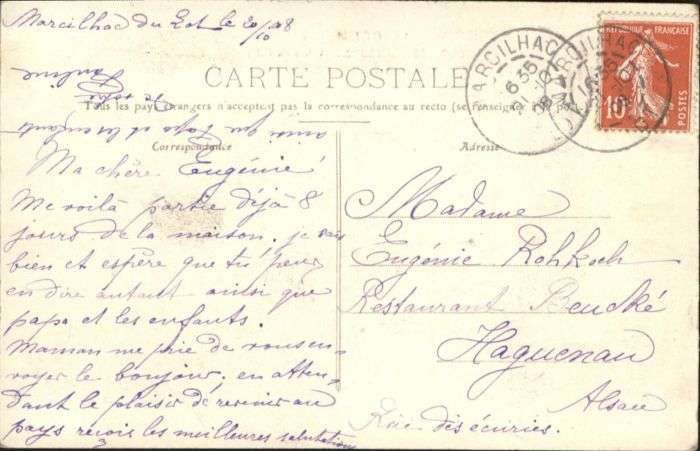 Marcilhac du Lot le 20/10 08
CARTE POSTALE
Tous les pays étrangers n'acceptent pas la correspondance au recto (se renseigner
Correspondance
Ma chère Eugénie
Me voilà partie déjà 8
jours de la maison. je vais
bien et espère que tu peux
en dire autant ainsi que
papa et les enfants.
Maman me prie de vous en-
voyer le bonjour. en atten-
dant le plaisir de revenir au
pays reçois les meilleures salutations
ainsi que papa et les enfants
de votre
Pauline
Adresse
Madame
Eugénie Rohkoh
Restaurant Beucké
Haguenau
Alsace
Rue des écuries.
MARCILHAC
6 35
MARCILHAC
REPUBLIQUE FRANÇAISE
10
POSTES